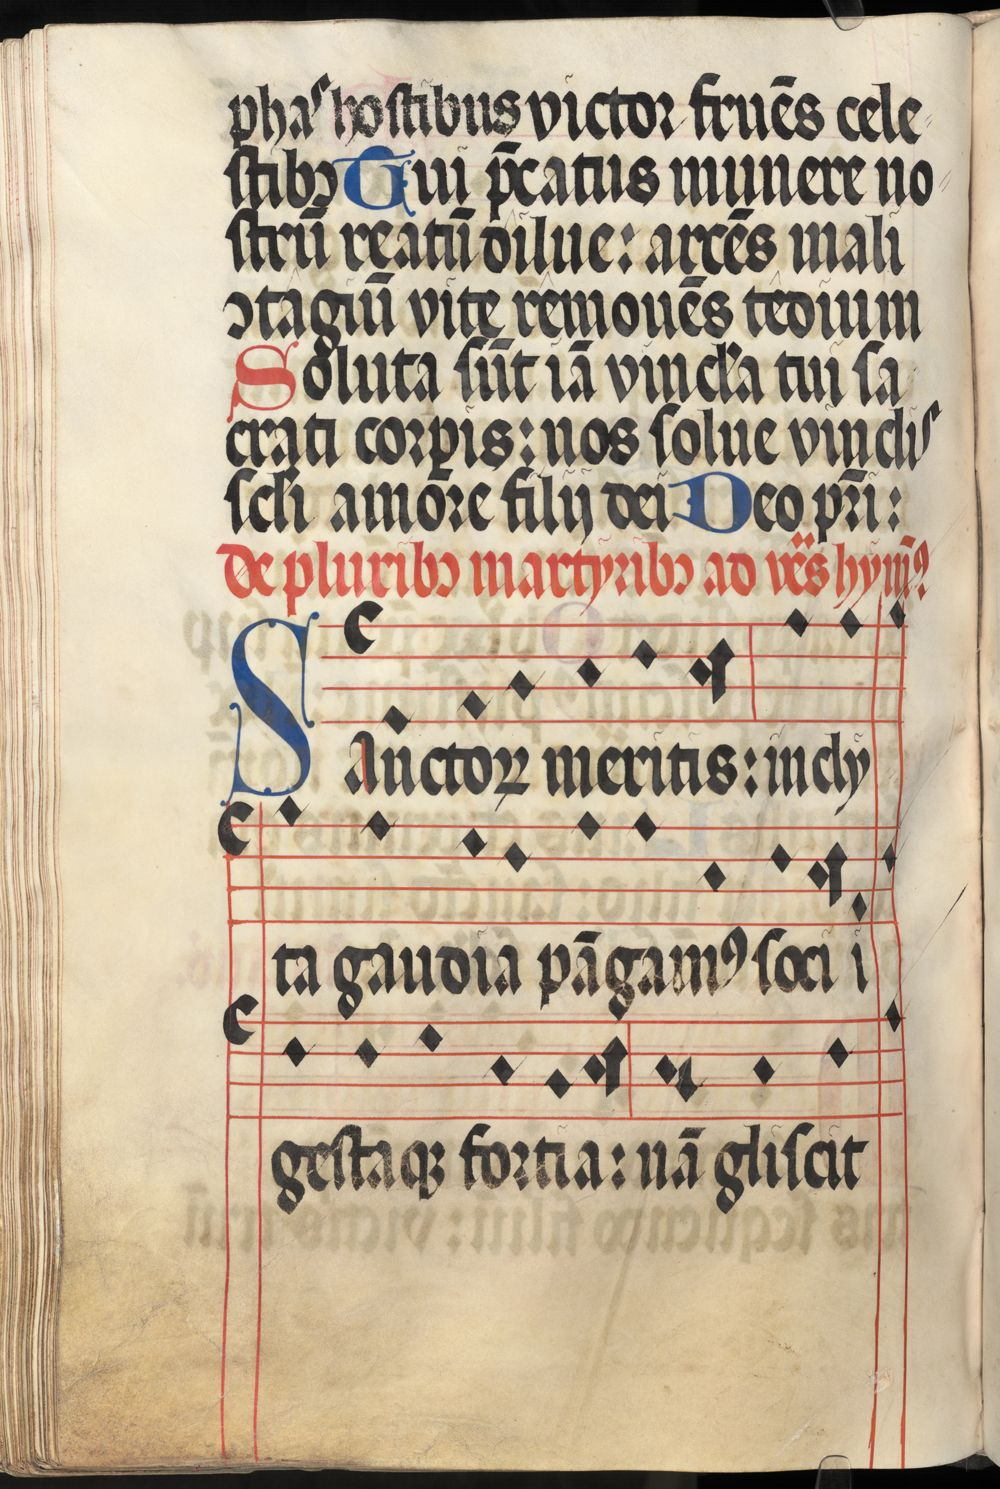 phaˢ hostibus victor fruēs cele
stibꝯ Tui p̄catus munere no
strū reatū dilue: arcēs mali
ↄtagiū vite remouēs tedium
Soluta sūt iā vincl̓a tui sa
crati corꝑis: nos solue vinclis
scl̓i amore filij dei Deo pr̄i:
De pluribꝯ martyribꝯ ad vēs̄ hym̄ꝰ
Sanctoꝝ meritis: incly
ta gaudia pāgamꝰ socii
gestaqꝫ fortia: nā gliscit